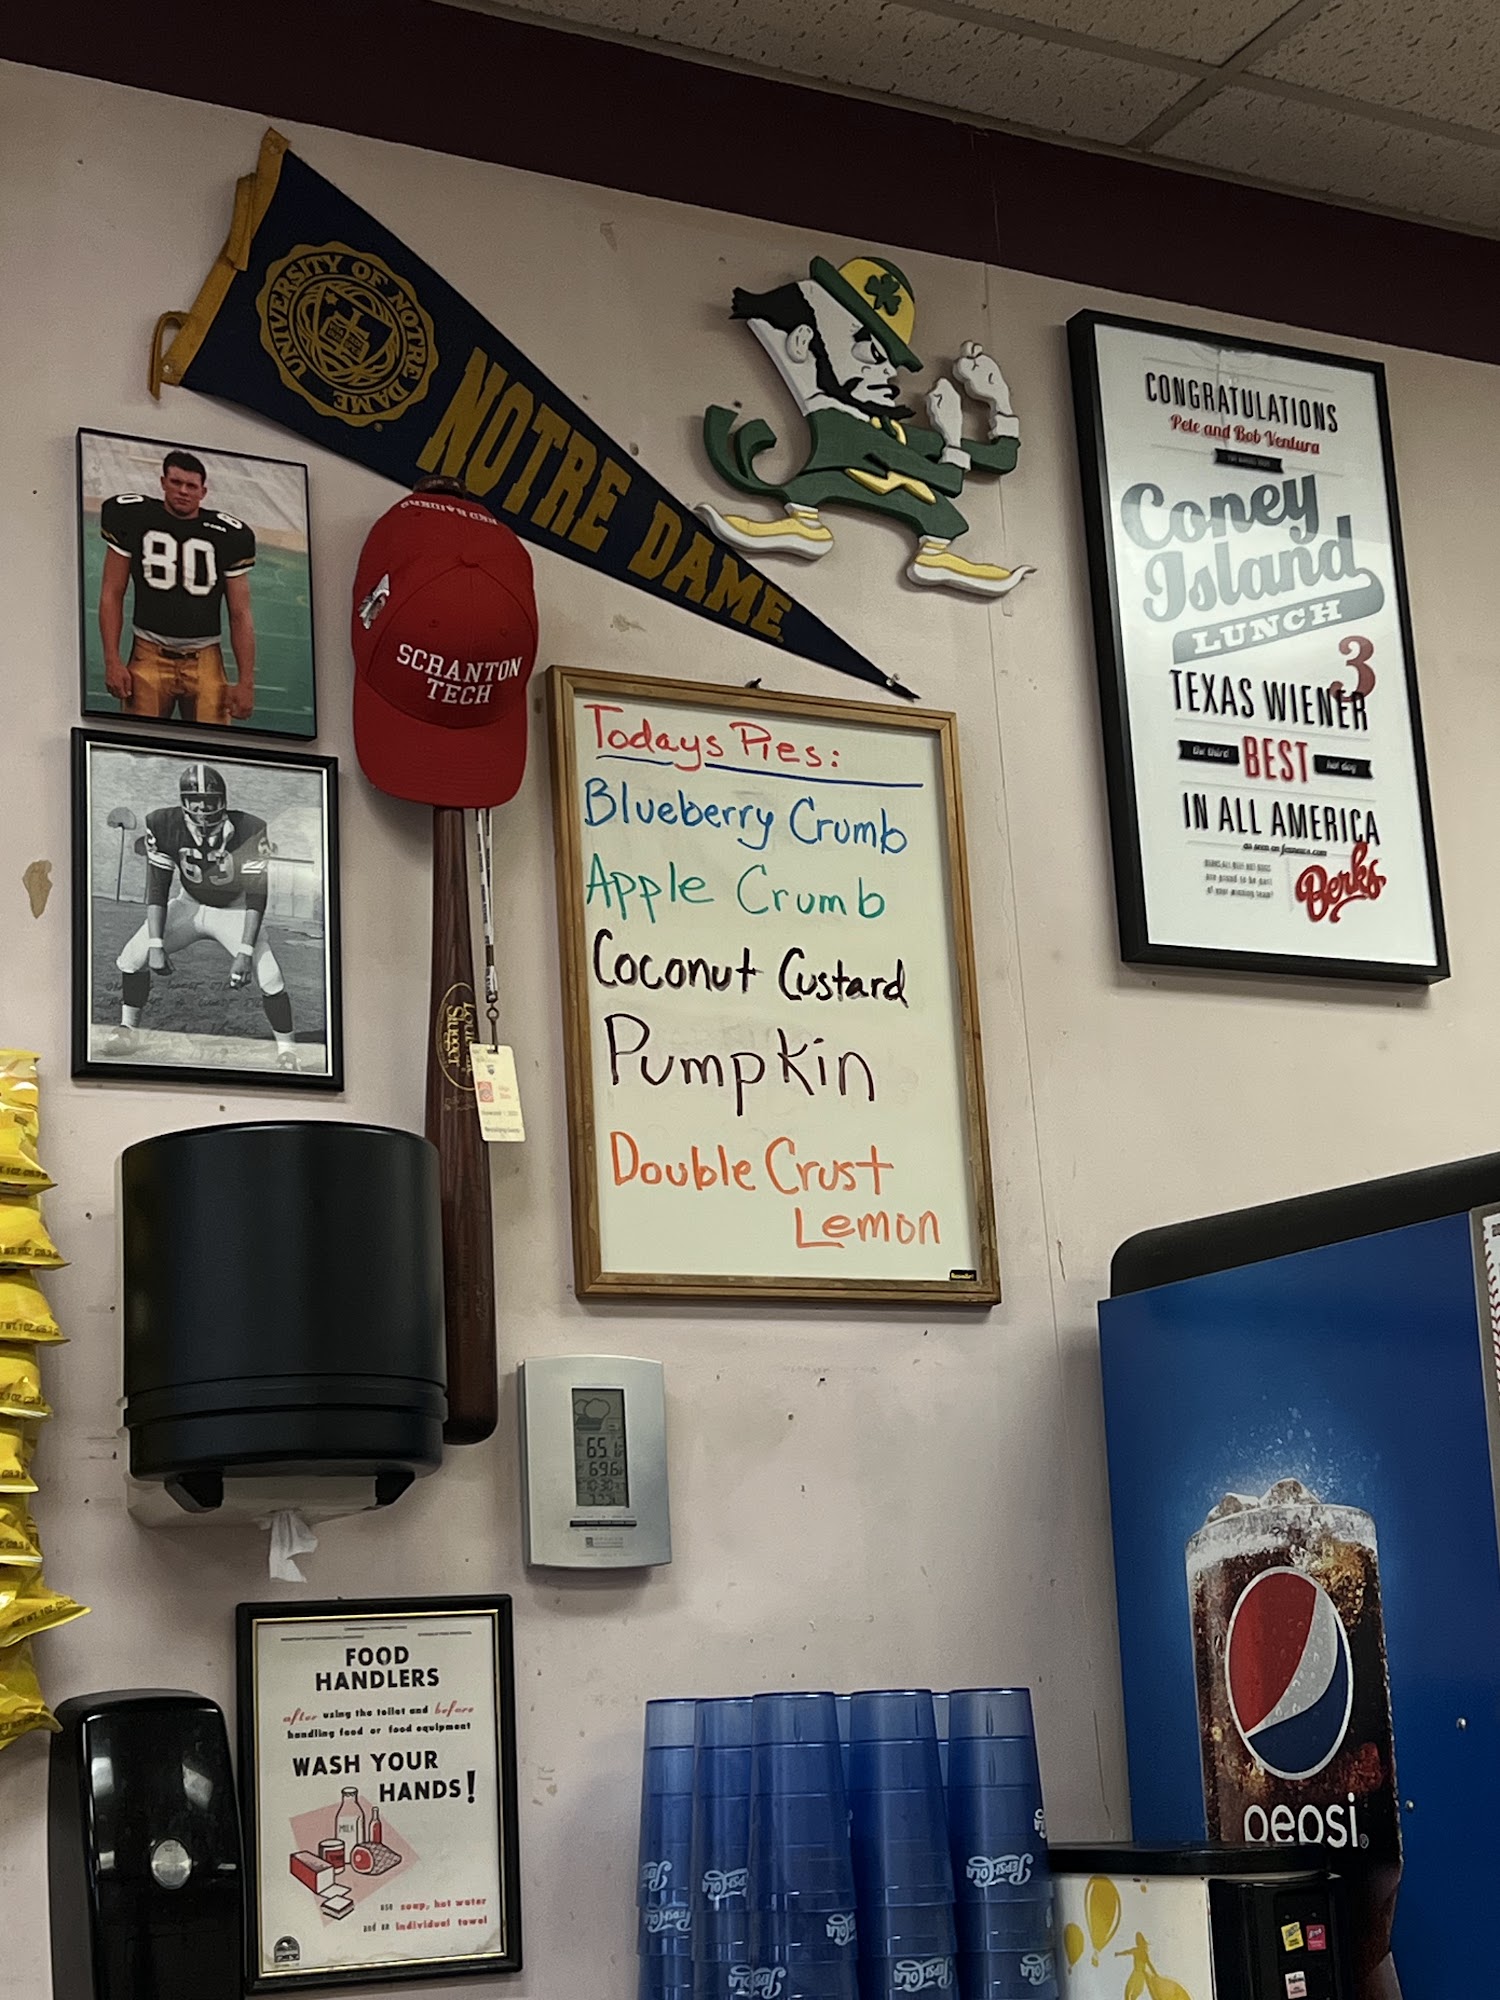 UNIVERSITY OF NOTRE DAME
NOTRE DAME
80
RED RAIDERS
SCRANTON
TECH
63
Todays Pies:
Blueberry Crumb
Apple Crumb
Coconut Custard
Pumpkin
Double Crust
Lemon
CONGRATULATIONS
Pete and Bob Ventura
Coney
Island
LUNCH
3
TEXAS WIENER
the third BEST hot dog
IN ALL AMERICA
as seen on
Berks
FOOD
HANDLERS
after using the toilet and before
handling food or food equipment
WASH YOUR
HANDS!
MILK
use soap, hot water
and an individual towel
pepsi
PEPSI-COLA
PEPSI-COLA
PEPSI-COLA